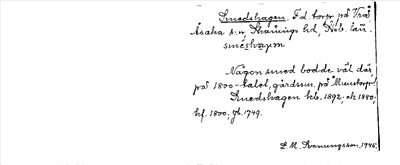 Smedshagen. F.d. torp på Vrå,
Åsaka sn, Skånings hd, Skb. län.
smɛ́shaɡɒn
Någon smed bodde väl där
på 1800-talet, gårdssm. på Munstorp.
Smedshagen hb. 1892, ek 1880,
hf. 1800, jb. 1749.
L. M. Svanungsson, 1945.